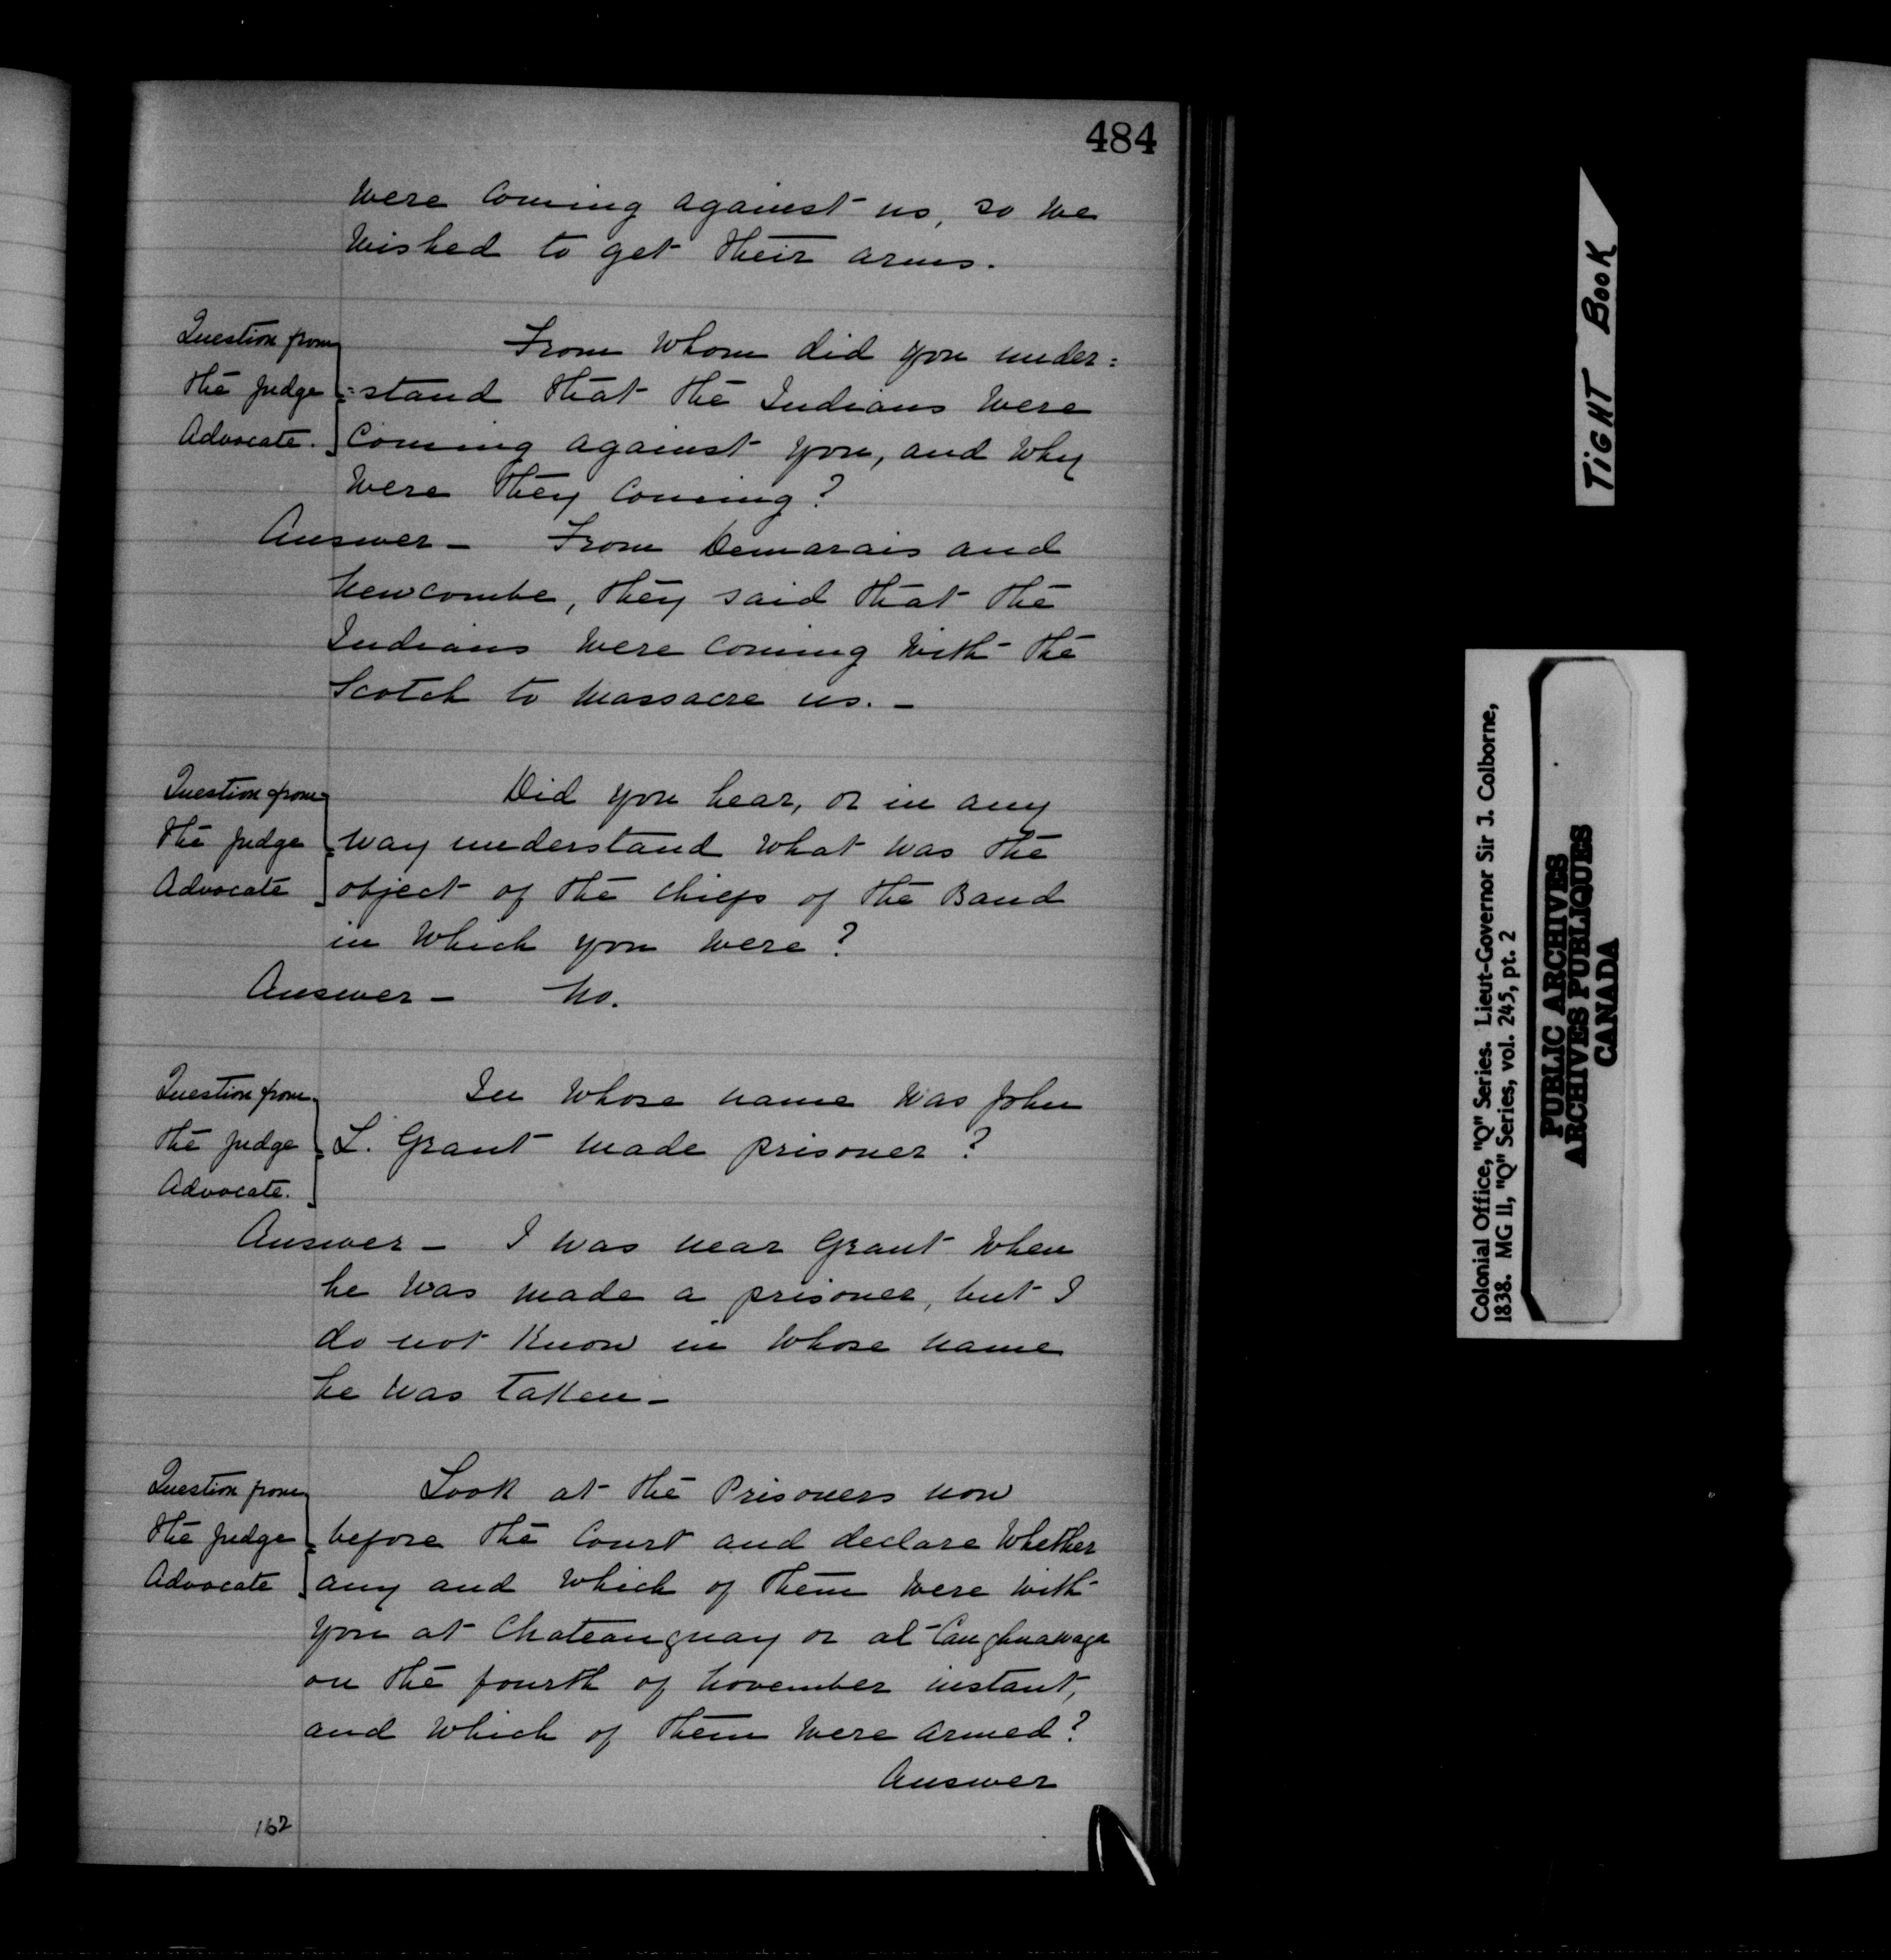 484
were coming against us, so we
wished to get their arms.
Question from
the Judge
Advocate.
From whom did you under=
=stand that the Indians were
coming against you, and why
were they coming?
Answer — From Demarais and
Newcombe, they said that the
Indians were coming with the
Scotch to massacre us. —
Question from
the Judge
Advocate
Did you hear, or in any
way understand what was the
object of the chiefs of the Band
in which you were?
Answer — No.
Question from
the Judge
Advocate.
In whose name was John
L. Grant made prisoner?
Answer — I was near Grant when
he was made a prisoner, but I
do not know in whose name
he was taken —
Question from
the Judge
Advocate
Look at the Prisoners now
before the Court and declare whether
any and which of them were with
you at Chateauguay or at Caughnawaga
on the fourth of November instant,
and which of them were armed?
Answer
162
TIGHT BOOK
Colonial Office, "Q" Series. Lieut-Governor Sir J. Colborne,
1838. MG 11, "Q" Series, vol. 245, pt. 2
PUBLIC ARCHIVES
ARCHIVES PUBLIQUES
CANADA